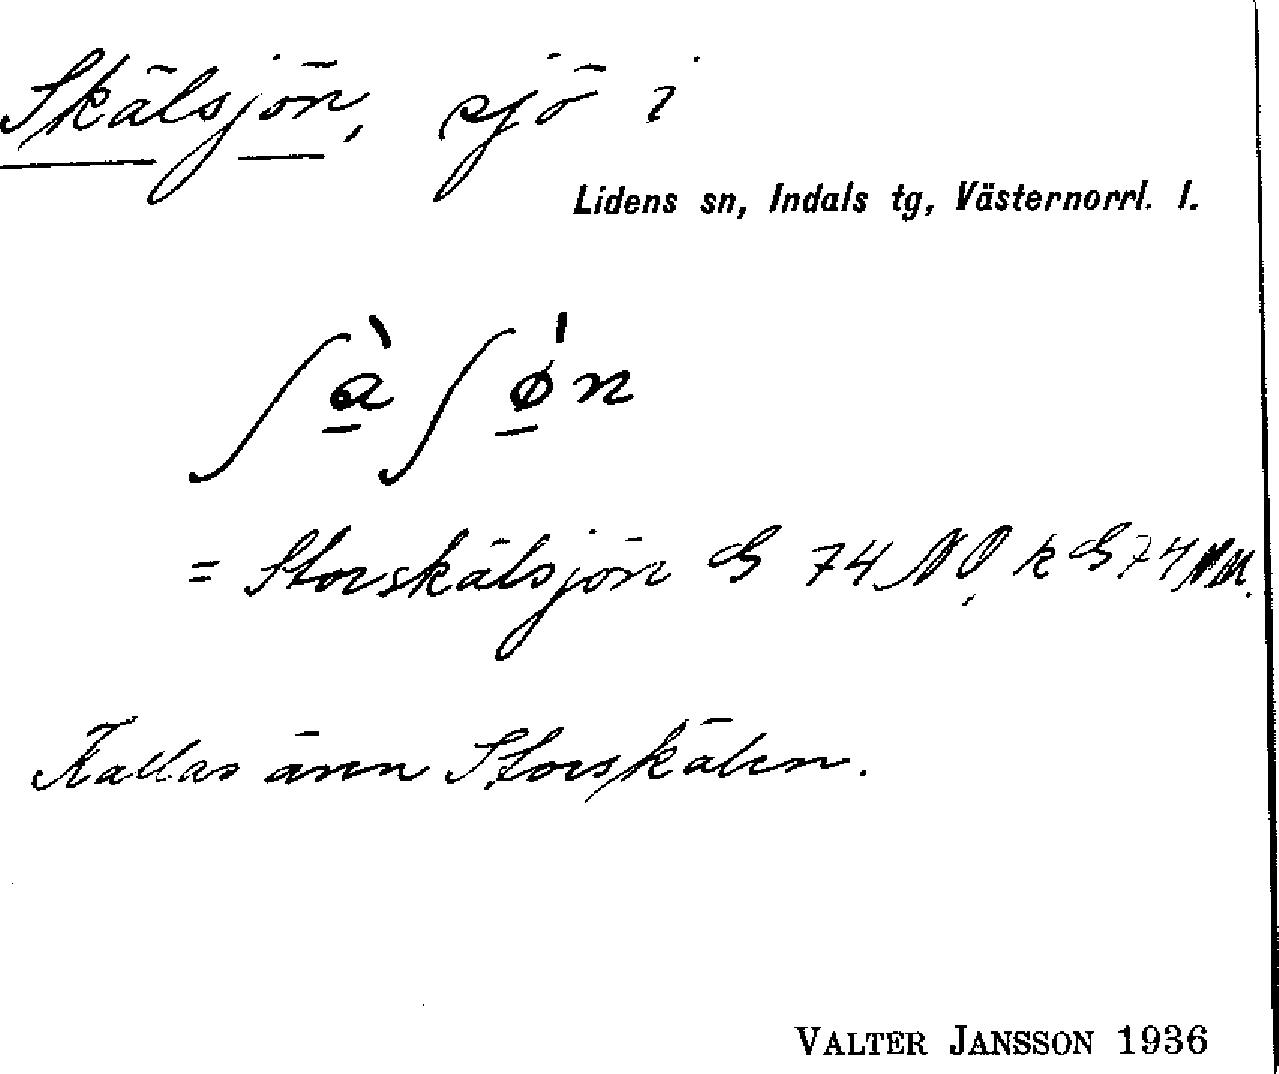 Skälsjön, sjö i
Lidens sn, Indals tg, Västernorrl. l.
ʃà̠ʃǿ̠n
= Storskälsjön G 74 NO, k G 74
Kallas även Storskälen.
VALTER JANSSON 1936